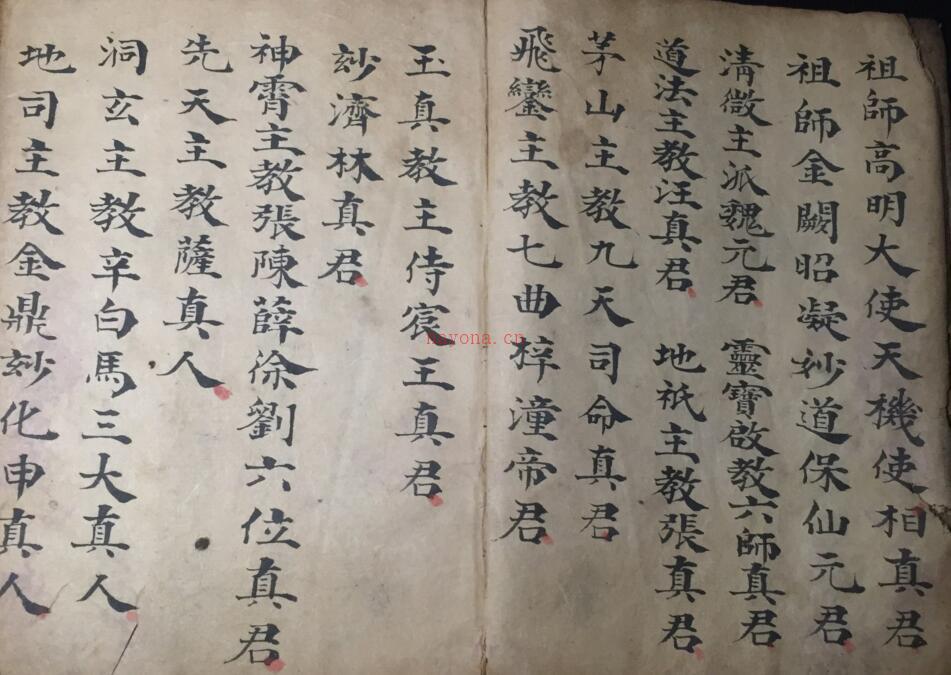 祖師高明大使天機使相真君
祖師金闕昭凝妙道保仙元君
清微主派魏元君 靈寶啟教六師真君
道法主教汪真君 地祇主教張真君
茅山主教九天司命真君
飛鸞主教七曲梓潼帝君
玉真教主侍宸王真君
妙濟林真君
神霄主教張陳薛徐劉六位真君
先天主教薩真人
洞玄主教辛白馬三大真人
地司主教金鼎妙化申真人
nayona.cn